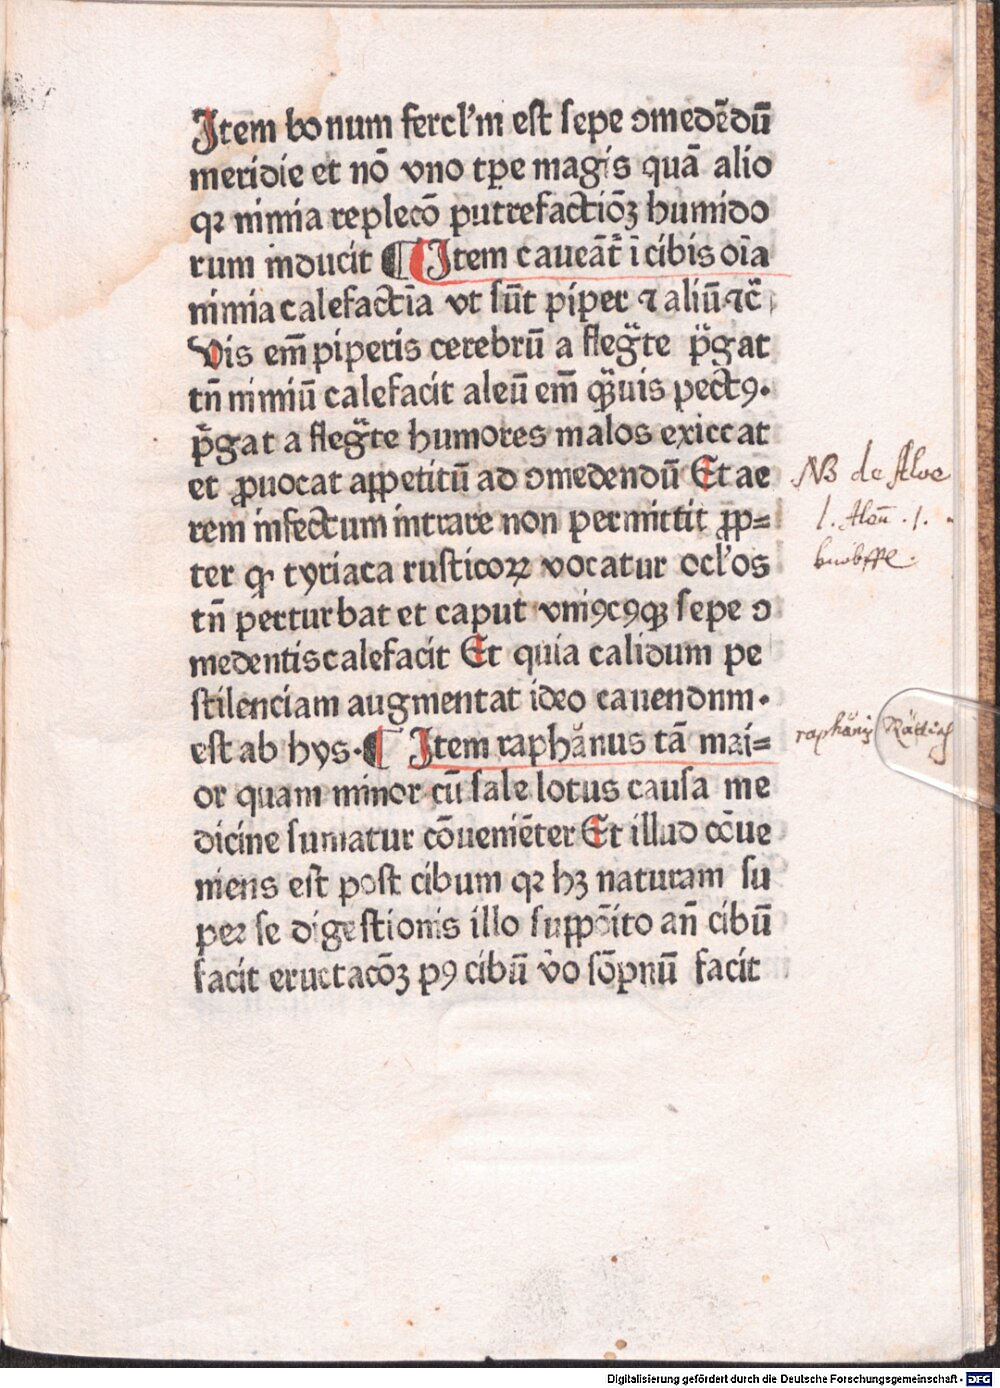 Item bonum fercl'm est sepe ↄmedēdū
meridie et nō vno tꝑe magis quā alio
qꝛ nimia replecō putrefactiōꝫ humido
rum inducit ¶ Item caueāt' ī cibis oīa
nimia calefactīa vt sūt piper ⁊ aliū ⁊c̄
Vis em̄ piperis cerebrū a flegͣte pͬgat
tn̄ nimiū calefacit aleū em̄ qͣuis pectꝰ.
pͬgat a flegͣte humores malos exiccat
et ꝓuocat appetitū ad ↄmedendū Et ae
rem infectum intrare non permittit ꝓp=
ter qꝫ tyriaca rusticoꝝ vocatur ocl'os
tn̄ perturbat et caput vniꝰcꝰqꝫ sepe ↄ
medentis calefacit Et quia calidum pe
stilenciam augmentat ideo cauendnm.
est ab hys. ¶ Item raphanus tā mai=
or quam minor cū sale lotus causa me
dicine sumatur cōueniēter Et illud cōue
niens est post cibum qꝛ hꝫ naturam su
per se digestionis illo suppōito an̄ cibū
facit eructacōꝫ pꝰ cibū vo sōpnū facit
NB de Aloe
l. Aleū . j.
knobffle.
raphanꝰ Rättich
Digitalisierung gefördert durch die Deutsche Forschungsgemeinschaft - DFG